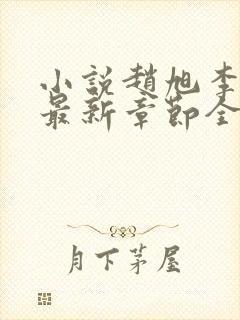 小說趙旭李
最新章節全
月下茅屋